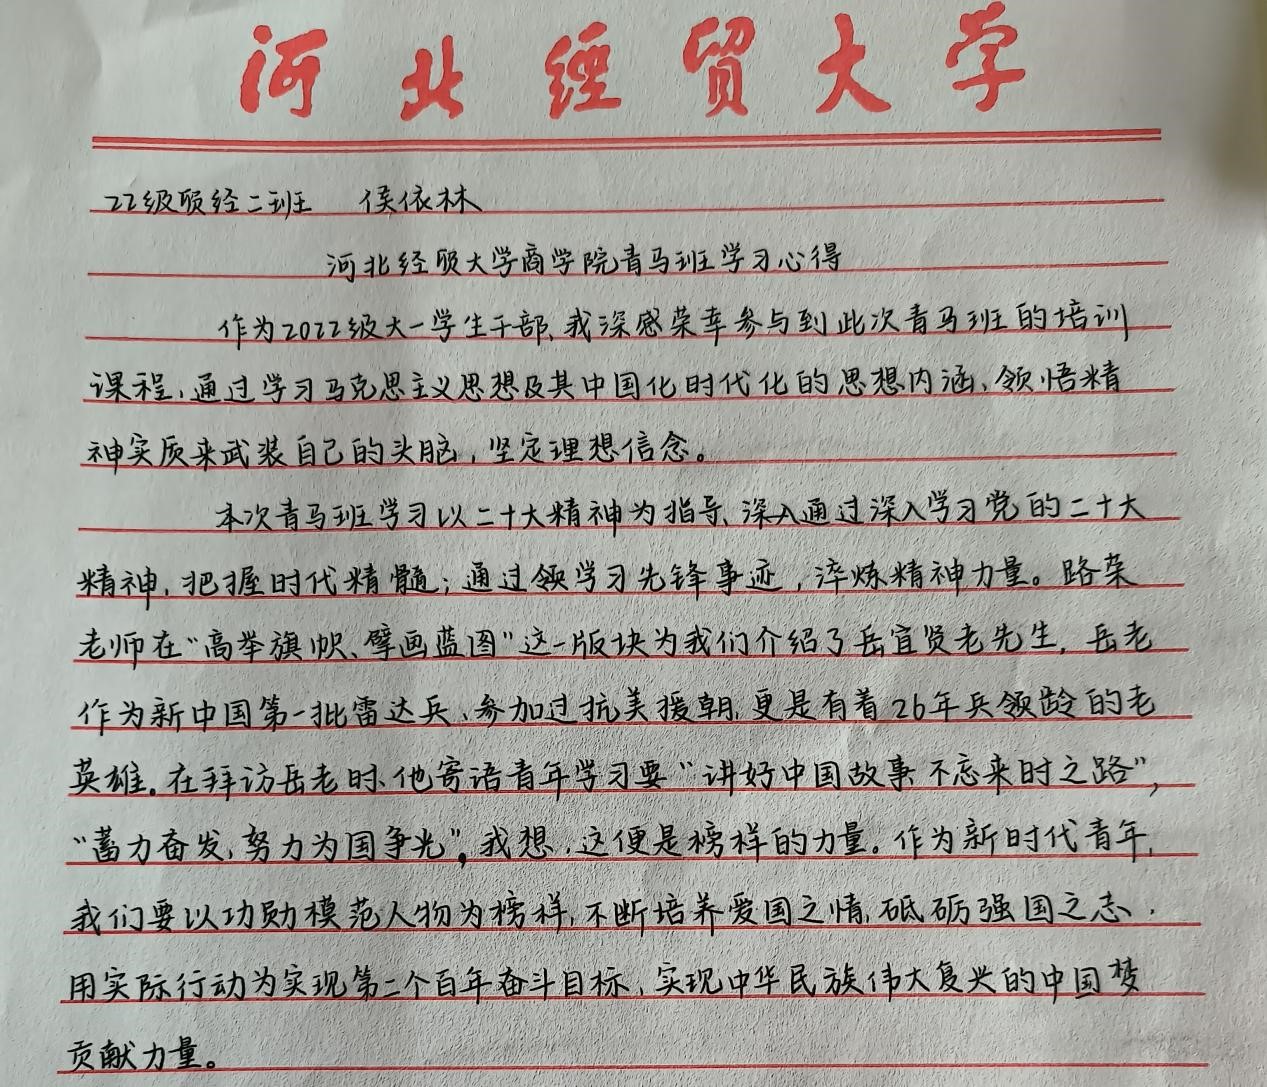 河北经贸大学
22级贸经二班 侯依林
河北经贸大学商学院青马班学习心得
作为2022级大一学生干部、我深感荣幸参与到此次青马班的培训
课程,通过学习马克思主义思想及其中国化时代化的思想内涵、领悟精
神实质来武装自己的头脑,坚定理想信念。
本次青马班学习以二十大精神为指导、深入通过深入学习党的二十大
精神,把握时代精髓;通过领学习先锋事迹,淬炼精神力量。路荣
老师在“高举旗帜、擘画蓝图”这一版块为我们介绍了岳宜贤老先生,岳老
作为新中国第一批雷达兵、参加过抗美援朝,更是有着26年兵领龄的老
英雄。在拜访岳老时、他寄语青年学习要“讲好中国故事 不忘来时之路”,
“蓄力奋发,努力为国争光”,我想,这便是榜样的力量。作为新时代青年,
我们要以功勋模范人物为榜样,不断培养爱国之情,砥砺强国之志,
用实际行动为实现第二个百年奋斗目标、实现中华民族伟大复兴的中国梦
贡献力量。